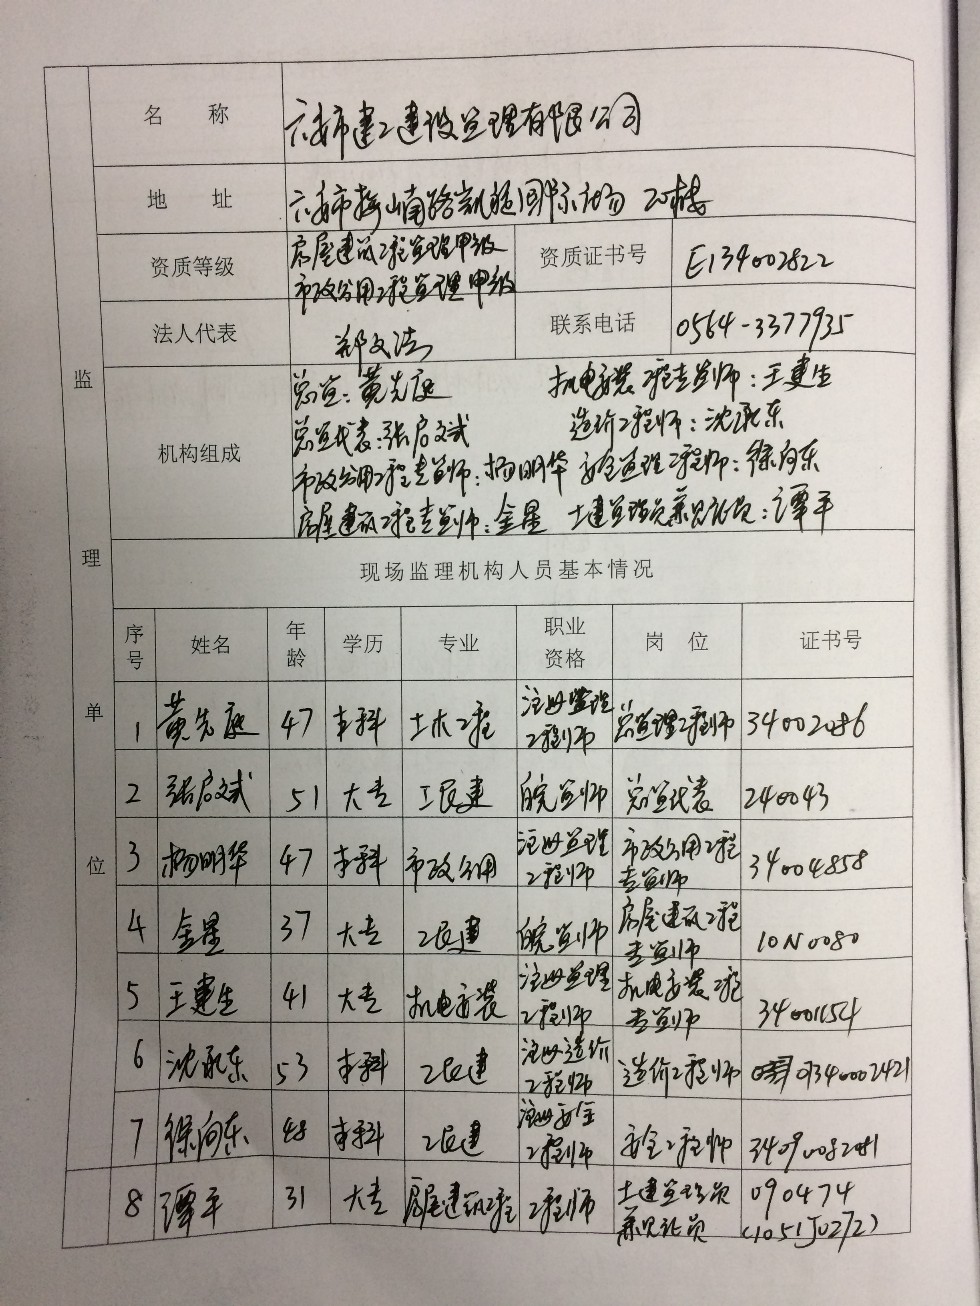 名 称 六安市建工建设监理有限公司
地 址 六安市梅山南路凯旋国际广场 20栋
资质等级 房屋建筑工程监理甲级
市政公用工程监理甲级
资质证书号 E134002822
法人代表 郑文法 联系电话 0564-3377935
监理单位
机构组成
总监:黄先庭 机电安装工程专监师:王建生
总监代表:张启斌 造价工程师:沈承东
市政公用工程专监师:杨明华 安全监理工程师:徐向东
房屋建筑工程专监师:金星 土建监理员兼见证员:谭平
现场监理机构人员基本情况
序号 姓名 年龄 学历 专业 职业资格 岗 位 证书号
1 黄先庭 47 本科 土木工程 注册监理工程师 总监理工程师 34002086
2 张启斌 51 大专 工民建 皖监师 总监代表 240043
3 杨明华 47 本科 市政公用 注册监理工程师 市政公用工程专监师 34004858
4 金星 37 大专 工民建 皖监师 房屋建筑工程专监师 10N0080
5 王建生 41 大专 机电安装 注册监理工程师 机电安装工程专监师 34001154
6 沈承东 53 本科 工民建 注册造价工程师 造价工程师 01340002421
7 徐向东 48 本科 工民建 注册安全工程师 安全工程师
8 谭平 31 大专 房屋建筑工程 工程师 土建监理员兼见证员 090474
(1051J0272)